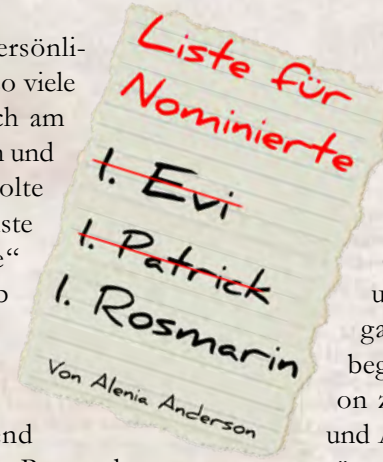 ersönli-
o viele
ch am
n und
olte
ste
e“
Liste für
Nominierte
1. Evi
1. Patrick
1. Rosmarin
Von Alenia Anderson
u
ga
beg
on z
end
und A